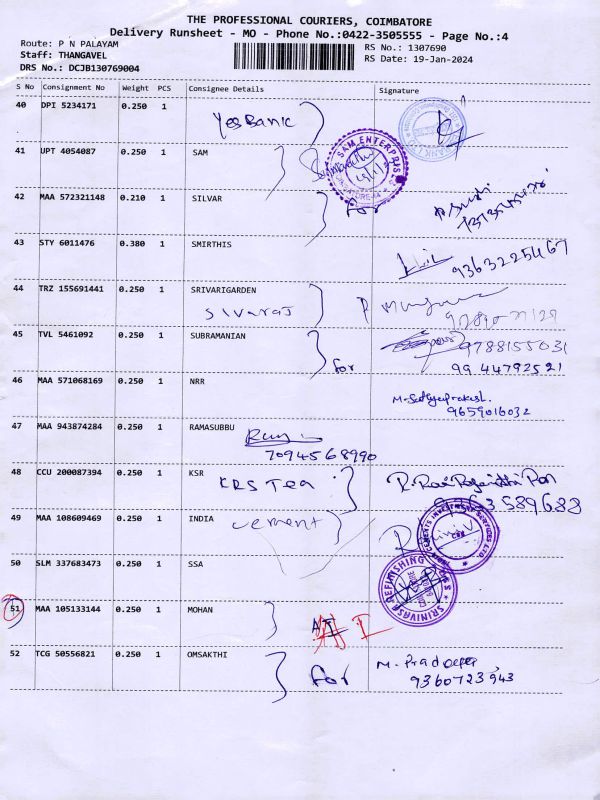 THE PROFESSIONAL COURIERS, COIMBATORE
Delivery Runsheet - MO - Phone No.:0422-3505555 - Page No.:4
Route: P N PALAYAM
RS No.: 1307690
Staff: THANGAVEL
RS Date: 19-Jan-2024
DRS No.: DCJB130769004
S No Consignment No Weight PCS Consignee Details Signature
40 DPI 5234171 0.250 1
Yes Bank
41 UPT 4054087 0.250 1 SAM
SAM ENTERPRISES
for
42 MAA 572321148 0.210 1 SILVAR
43 STY 6011476 0.380 1 SMIRTHIS
9363225467
44 TRZ 155691441 0.250 1 SRIVARIGARDEN
Sivaraj
45 TVL 5461092 0.250 1 SUBRAMANIAN
for
9788155031
9944792521
46 MAA 571068169 0.250 1 NRR
M. Sathyaprakash.
9659016032
47 MAA 943874284 0.250 1 RAMASUBBU
7094568990
48 CCU 200087394 0.250 1 KSR
KRS Tea
49 MAA 108609469 0.250 1 INDIA
cement
50 SLM 337683473 0.250 1 SSA
51 MAA 105133144 0.250 1 MOHAN
52 TCG 50556821 0.250 1 OMSAKTHI
for
M. Pradeepa
9360723943